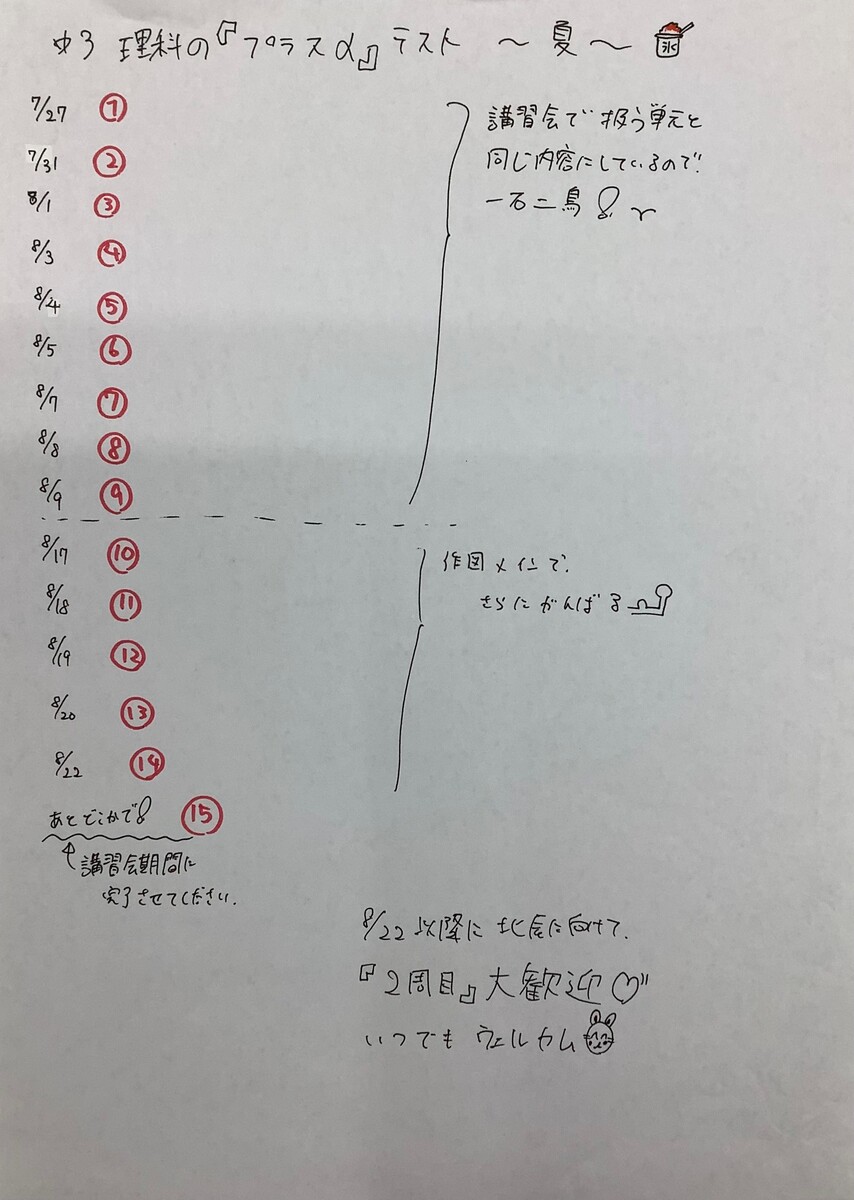 中3 理科の『プラスα』テスト ～夏～ 氷
7/27 ①
7/31 ②
8/1 ③
8/3 ④
8/4 ⑤
8/5 ⑥
8/7 ⑦
8/8 ⑧
8/9 ⑨
講習会で扱う単元と
同じ内容にしているので、
一石二鳥!
8/17 ⑩
8/18 ⑪
8/19 ⑫
8/20 ⑬
8/22 ⑭
あとどこかで! ⑮
作図メインで、
さらにがんばる
講習会期間に
完了させてください.
8/22以降に 北辰に向けて、
『2周目』大歓迎♡
いつでも ウェルカム